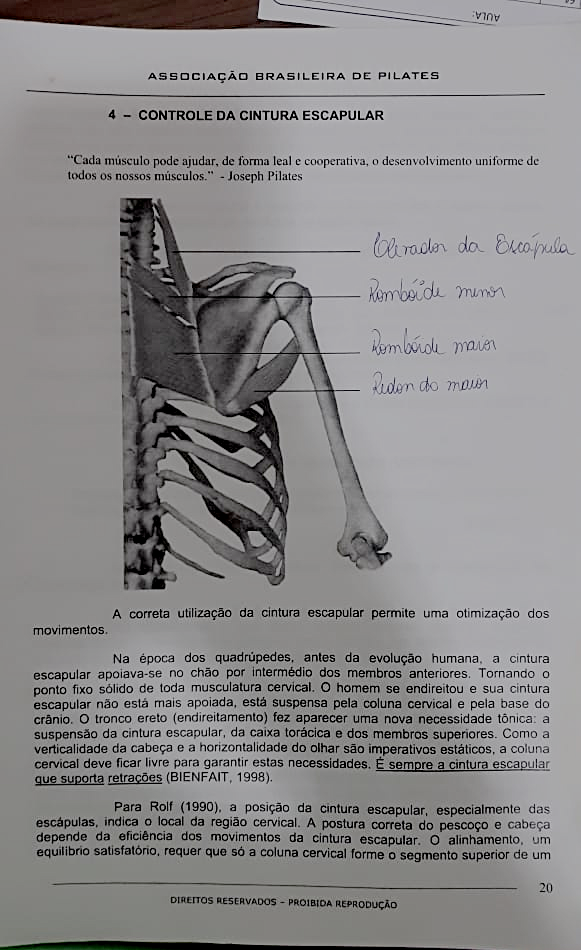 AULA:
ASSOCIAÇÃO BRASILEIRA DE PILATES
4 – CONTROLE DA CINTURA ESCAPULAR
“Cada músculo pode ajudar, de forma leal e cooperativa, o desenvolvimento uniforme de
todos os nossos músculos.” - Joseph Pilates
Elevador da Escápula
Rombóide menor
Rombóide maior
Redondo maior
A correta utilização da cintura escapular permite uma otimização dos
movimentos.
Na época dos quadrúpedes, antes da evolução humana, a cintura
escapular apoiava-se no chão por intermédio dos membros anteriores. Tornando o
ponto fixo sólido de toda musculatura cervical. O homem se endireitou e sua cintura
escapular não está mais apoiada, está suspensa pela coluna cervical e pela base do
crânio. O tronco ereto (endireitamento) fez aparecer uma nova necessidade tônica: a
suspensão da cintura escapular, da caixa torácica e dos membros superiores. Como a
verticalidade da cabeça e a horizontalidade do olhar são imperativos estáticos, a coluna
cervical deve ficar livre para garantir estas necessidades. É sempre a cintura escapular
que suporta retrações (BIENFAIT, 1998).
Para Rolf (1990), a posição da cintura escapular, especialmente das
escápulas, indica o local da região cervical. A postura correta do pescoço e cabeça
depende da eficiência dos movimentos da cintura escapular. O alinhamento, um
equilíbrio satisfatório, requer que só a coluna cervical forme o segmento superior de um
20
DIREITOS RESERVADOS – PROIBIDA REPRODUÇÃO